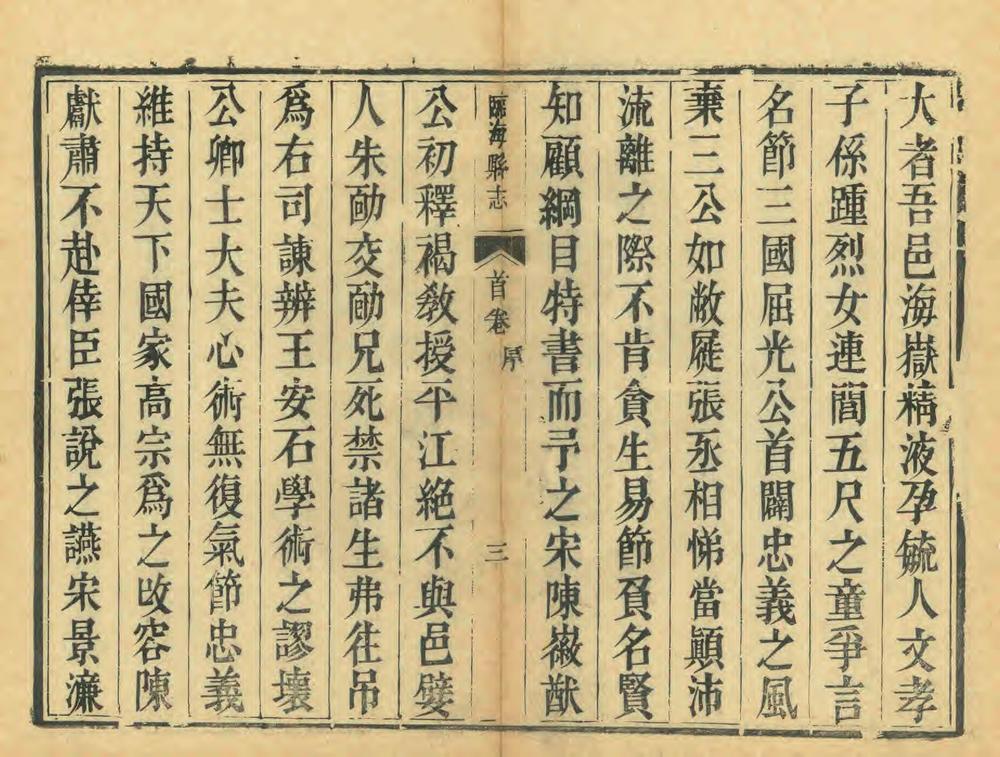 大者吾邑海嶽精液孕毓人文孝
子係踵烈女連閭五尺之童爭言
名節三國屈光公首闢忠義之風
棄三公如敝屣張丞相悌當顛沛
流離之際不肯貪生易節負名賢
知顧綱目特書而予之宋陳徽猷
臨海縣志
首卷
序
三
公初釋褐敎授平江絕不與邑嬖
人朱勔交勔兄死禁諸生弗往吊
爲右司諫辨王安石學術之謬壞
公卿士大夫心術無復氣節忠義
維持天下國家高宗爲之改容陳
獻肅不赴倖臣張說之讌宋景濂